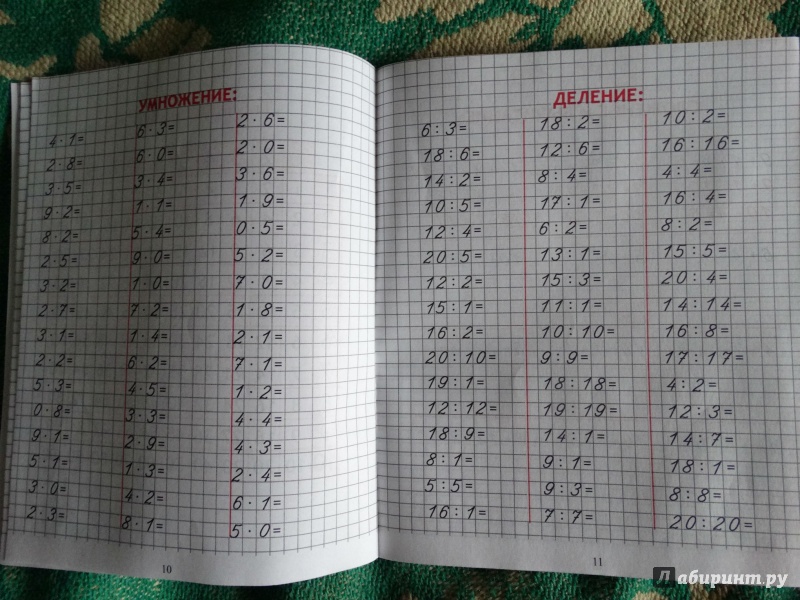 УМНОЖЕНИЕ:
4 · 1=
2 · 8=
3 · 5=
9 · 2=
8 · 2=
2 · 5=
3 · 2=
2 · 7=
3 · 1=
2 · 2=
5 · 3=
0 · 8=
9 · 1=
5 · 1=
3 · 0=
2 · 3=
6 · 3=
6 · 0=
3 · 4=
1 · 1=
5 · 4=
9 · 0=
1 · 0=
7 · 2=
1 · 4=
6 · 2=
4 · 5=
3 · 3=
2 · 9=
1 · 3=
4 · 2=
8 · 1=
2 · 6=
2 · 0=
3 · 6=
1 · 9=
0 · 5=
5 · 2=
7 · 0=
1 · 8=
2 · 1=
7 · 1=
1 · 2=
4 · 4=
4 · 3=
2 · 4=
6 · 1=
5 · 0=
10
ДЕЛЕНИЕ:
6 : 3=
18 : 6=
14 : 2=
10 : 5=
12 : 4=
20 : 5=
12 : 2=
15 : 1=
16 : 2=
20 : 10=
19 : 1=
12 : 12=
18 : 9=
8 : 1=
5 : 5=
16 : 1=
18 : 2=
12 : 6=
8 : 4=
17 : 1=
6 : 2=
13 : 1=
15 : 3=
11 : 1=
10 : 10=
9 : 9=
18 : 18=
19 : 19=
14 : 1=
9 : 1=
9 : 3=
7 : 7=
10 : 2=
16 : 16=
4 : 4=
16 : 4=
8 : 2=
15 : 5=
20 : 4=
14 : 14=
16 : 8=
17 : 17=
4 : 2=
12 : 3=
14 : 7=
18 : 1=
8 : 8=
20 : 20=
11
Л абиринт.ру